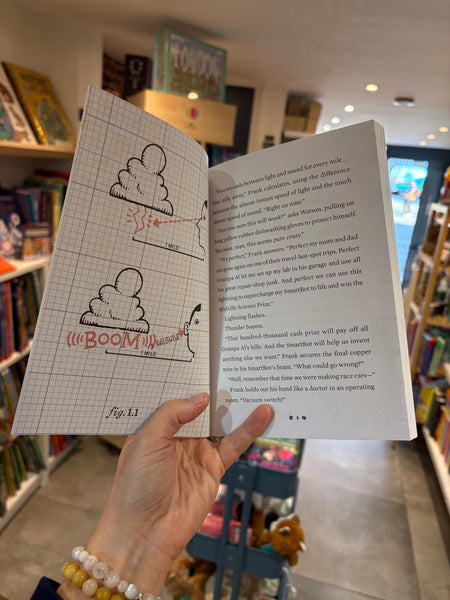 1 MILE
((((BOOM))))
5 SECONDS
1 MILE
fig. 1.1
"Five seconds between light and sound for every mile . . .
One mile away," Frank calculates, using the difference
between the almost-instant speed of light and the much
slower speed of sound. "Right on time."
"Are you sure this will work?" asks Watson, pulling on
long yellow rubber dishwashing gloves to protect himself.
"Because, man, this seems pure crazy."
"It's perfect," Frank answers. "Perfect my mom and dad
are gone again on one of their travel-bot-spot trips. Perfect
Grampa Al let me set up my lab in his garage and use all
his great repair-shop junk. And perfect we can use this
lightning to supercharge my SmartBot to life and win the
Midville Science Prize."
Lightning flashes.
Thunder booms.
"That hundred-thousand cash prize will pay off all
Grampa Al's bills. And the SmartBot will help us invent
anything else we want." Frank secures the final copper
wire in his SmartBot's brain. "What could go wrong?"
"Well, remember that time we were making race cars—"
Frank holds out his hand like a doctor in an operating
room. "Vacuum switch!"